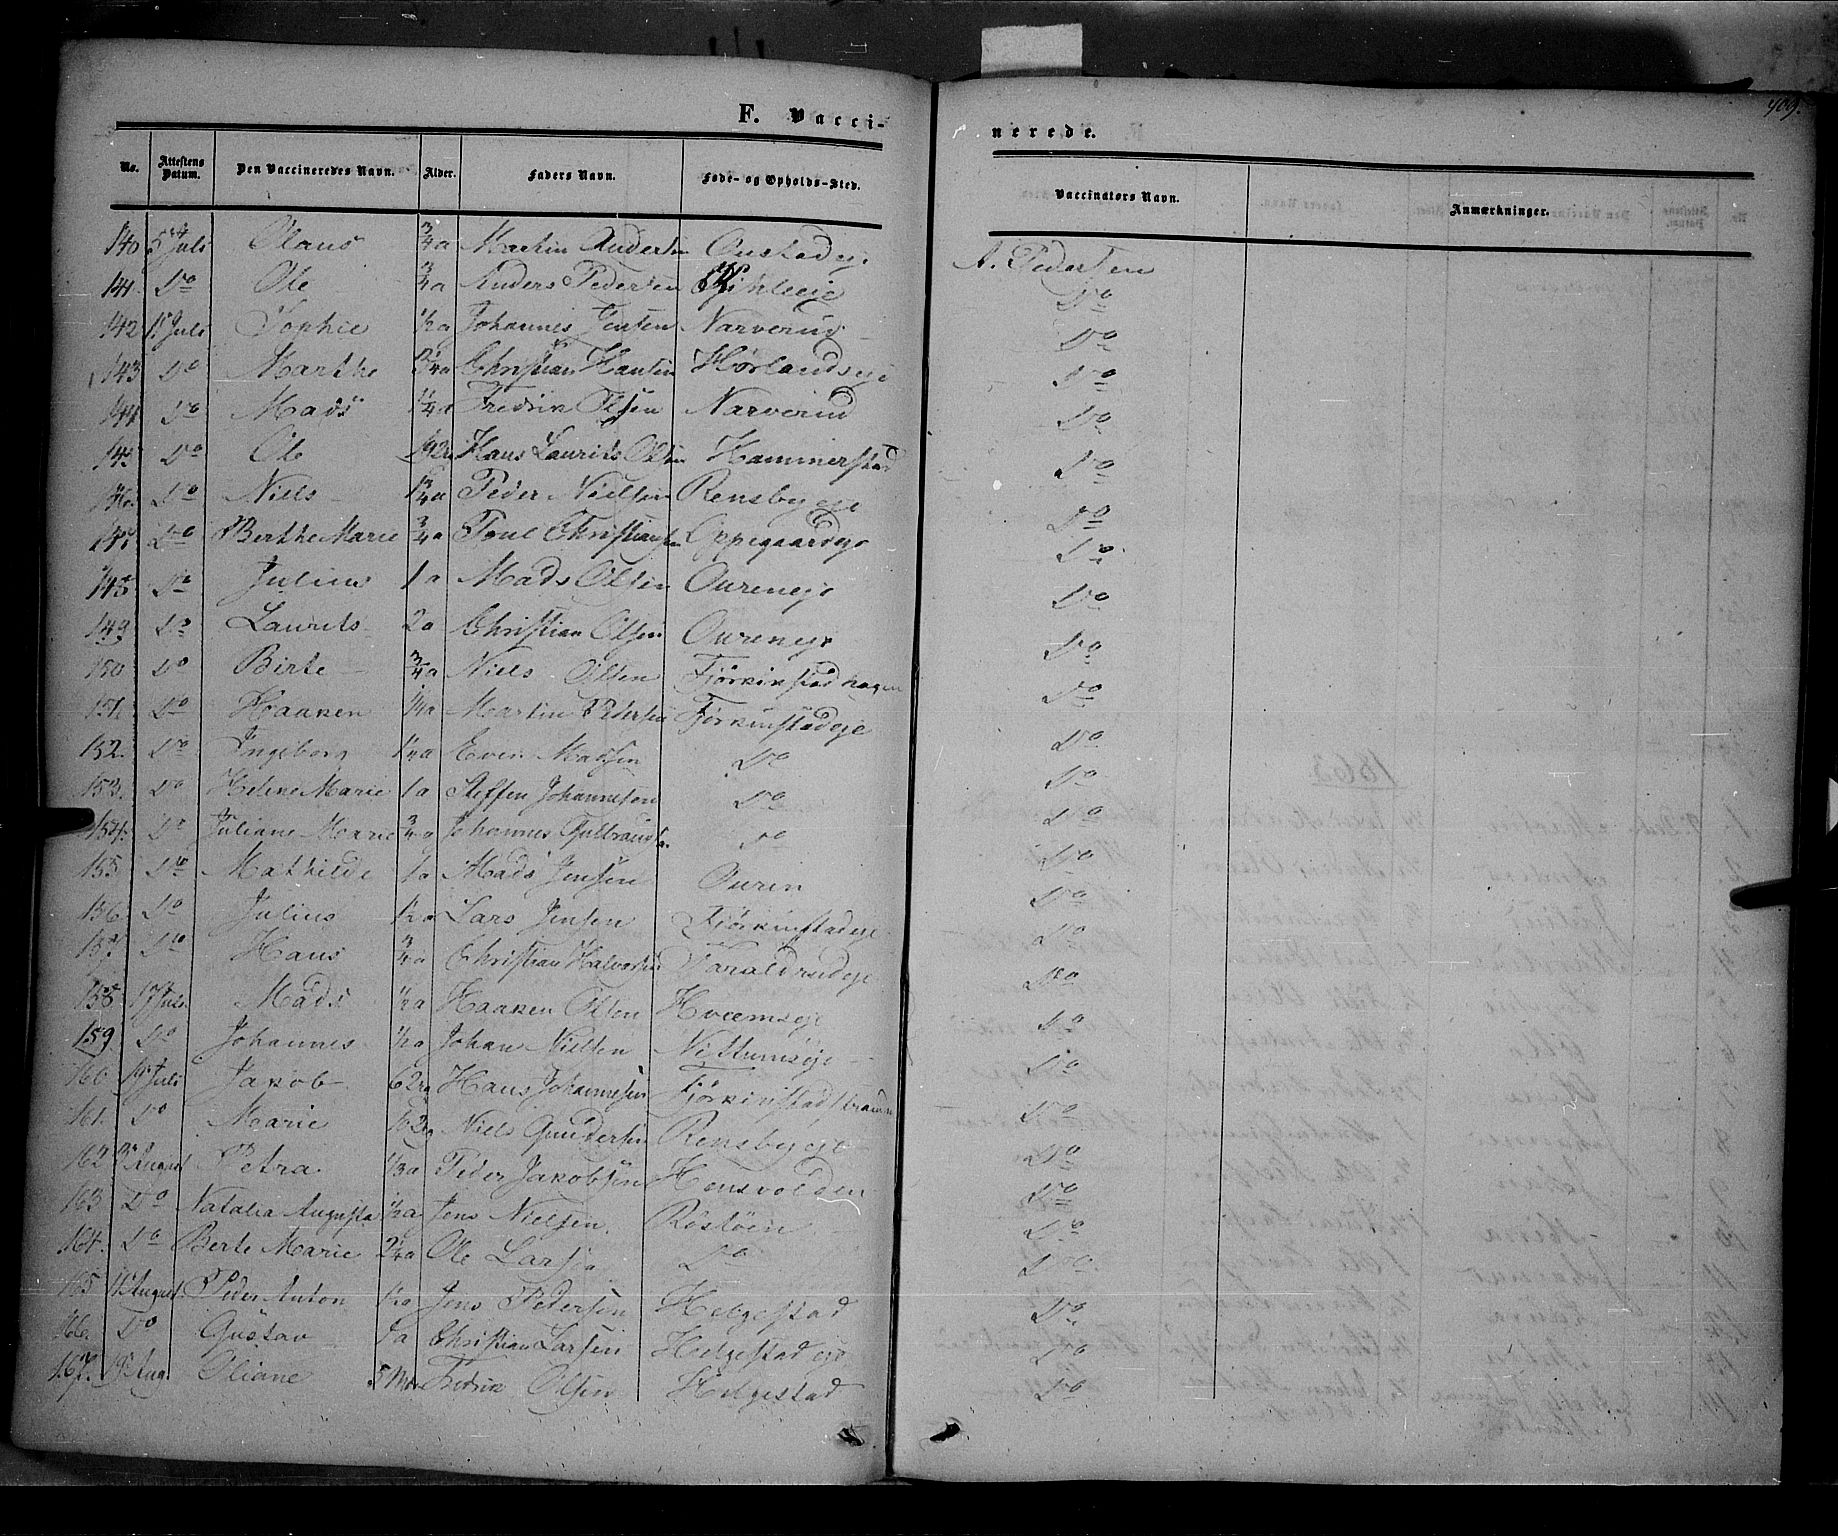 409.
F. Vacci-
nerede.
No. Attestens Datum. Den Vaccineredes Navn. Alder. Faders Navn. Føde- og Opholds-Sted. Vaccinators Navn. Anmærkninger.
140 5 Juli Olaus 3/4 a Martin Andersen A. Pedersen
141. Do Ole 3/4 a Anders Pedersen Do
142 Juli Sophie 1/2 a Johannes Jensen Narverud Do
143 Do Marthe Christian Hansen Hørlandseje Do
144 Do Mads 1/4 a Fredrik Olsen Narverud Do
145 Do Ole Hans Laurits Olsen Hammerstad Do
146. Do Niels Peder Nielsen Rensbyeje Do
147 Do Berthe Marie 3/4 a Poul Christiansen Oppegaardeje Do
148 Do Julius 1 a Mads Olsen Oureneje Do
149 Do Laurits 2 a Christian Olsen Oureneje Do
150 Do Birte 3/4 a Niels Olsen Fjørkinstadhagen Do
151. Do Haaken 1/4 a Martin Pedersen Fjørkinstadeje Do
152. Do Ingeborg 1/2 a Even Madsen Do Do
153. Do Helene Marie 1 a Steffen Johannesen Do Do
154. Do Juliane Marie 3/4 a Johannes Gulbrandsen Do Do
155 Do Mathilde 1 a Mads Jensen Ouren Do
156. Do Julius 1/2 a Lars Jensen Fjørkinstadeje Do
157. Do Hans 3/4 a Christian Halvorsen Haraldrudeje Do
158 17 Juli Mads 1/2 a Haaken Olsen Hveemseje Do
159. Do Johannes 1/2 a Johan Nielsen Nettumseje Do
160 19 Juli Jakob Hans Johannesen Do
161. Do Marie Niels Gundersen Rensbyeje Do
162 3 August Petra 1/3 a Peder Jakobsen Hensvolden Do
163 Do Natalia Augusta 1/2 a Jens Nielsen Røstøen Do
164. Do Berte Marie 2 1/4 a Ole Larsen Do Do
165 August. Peder Anton 1/2 a Jens Pedersen Helgestad Do
166. Do Gustav Christian Larsen Helgestadeje Do
167. 19 Aug. Oliane 5 Mdr Fredrik Olsen Helgestad Do